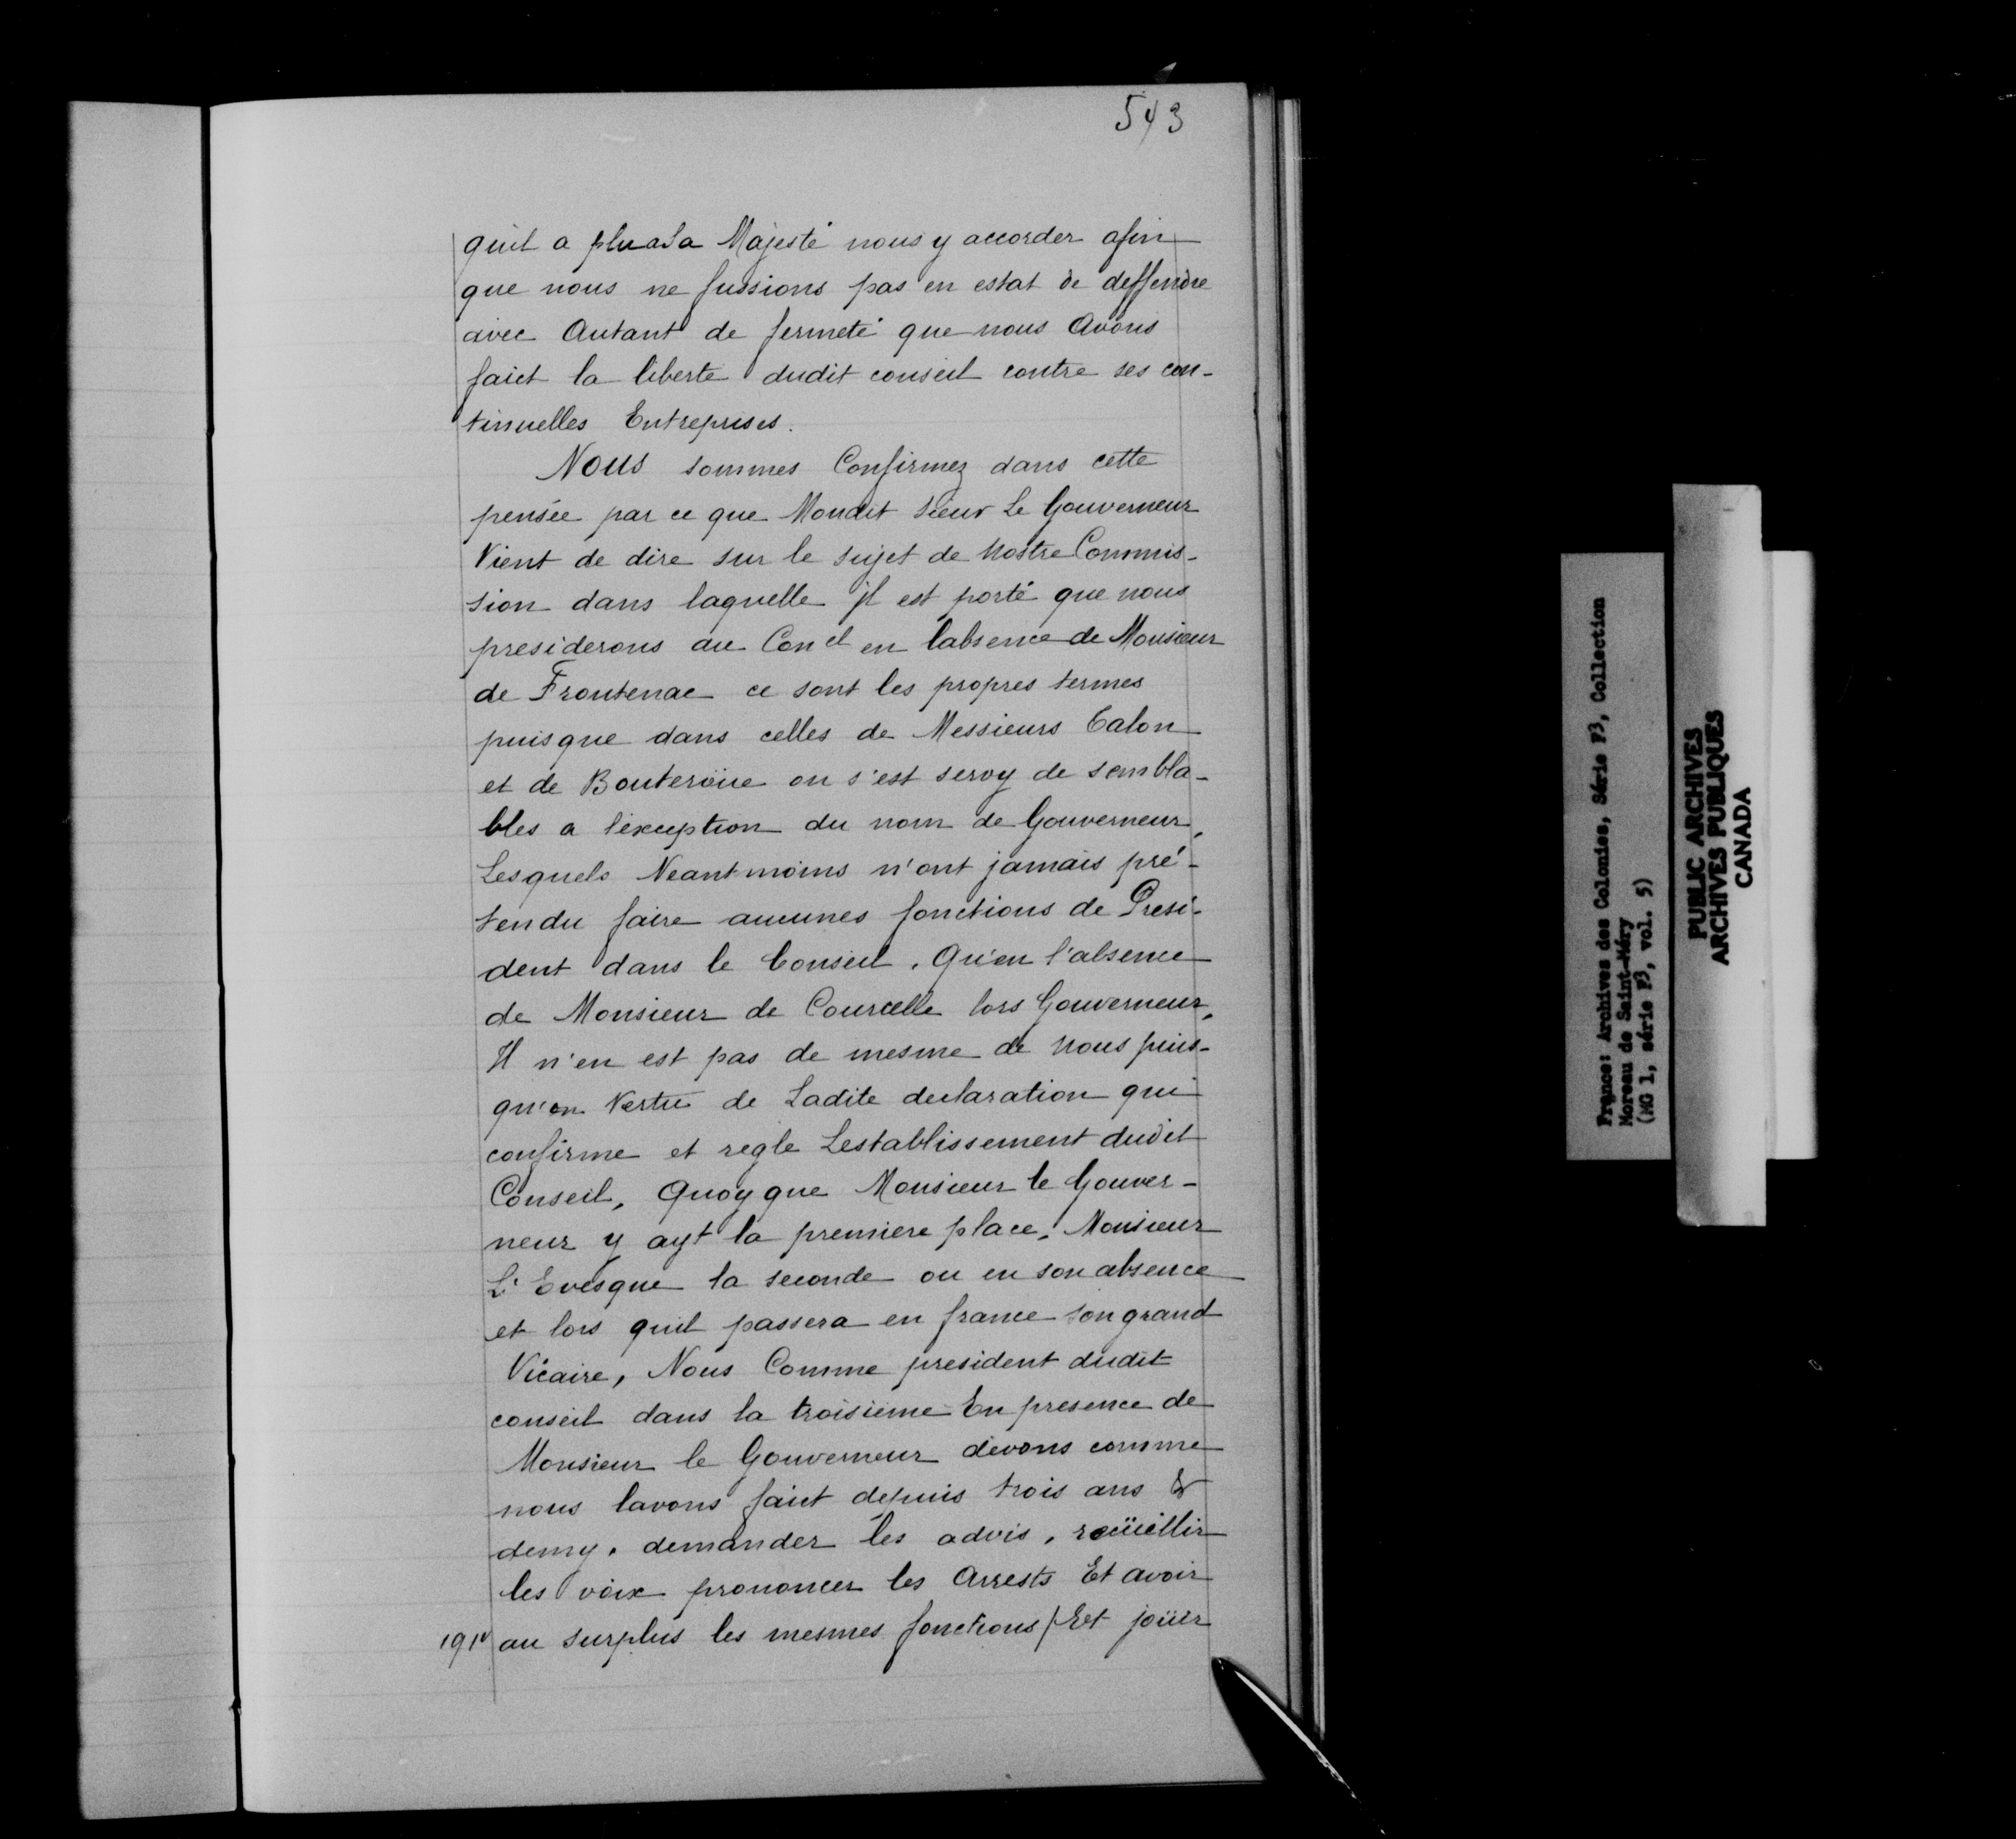 543
quil a plu a Sa Majesté nous y accorder afin
que nous ne fussions pas en estat de deffendre
avec Autant de fermeté que nous Avons
faict la liberté dudit conseil contre ses con-
tinuelles Entreprises.
Nous sommes Confirmez dans cette
pensée par ce que Mondit Sieur Le Gouverneur
Vient de dire sur le sujet de Nostre Commis-
sion dans laquelle jl est porté que nous
presiderons au Con el en labsence de Monsieur
de Frontenac ce sont les propres termes
puisque dans celles de Messieurs Talon
et de Bouteroüe on s'est servy de sembla-
bles a l'exception du nom de Gouverneur,
Lesquels Neantmoins n'ont jamais pré-
tendu faire aucunes fonctions de Presi-
dent dans le Conseil, Qu'en l'absence
de Monsieur de Courcelle lors Gouverneur,
Il n'en est pas de mesme de Nous puis-
qu'en Vertu de Ladite declaration qui
confirme et regle Lestablissement dudit
Conseil, Quoy que Monsieur le Gouver-
neur y ayt la premiere place, Monsieur
L'Evesque la seconde ou en son absence
et lors quil passera en france son grand
Vicaire, Nous Comme president dudit
conseil dans la troisieme En presence de
Monsieur le Gouverneur devons comme
nous lavons faict depuis trois ans &
demy, demander les advis, recüeillir
les voix prononcer les Arrests Et avoir
191v au surplus les mesmes fonctions / Et joüir
France: Archives des Colonies, Série F3, Collection
Moreau de Saint-Méry
(MG 1, série F3, vol. 5)
PUBLIC ARCHIVES
ARCHIVES PUBLIQUES
CANADA